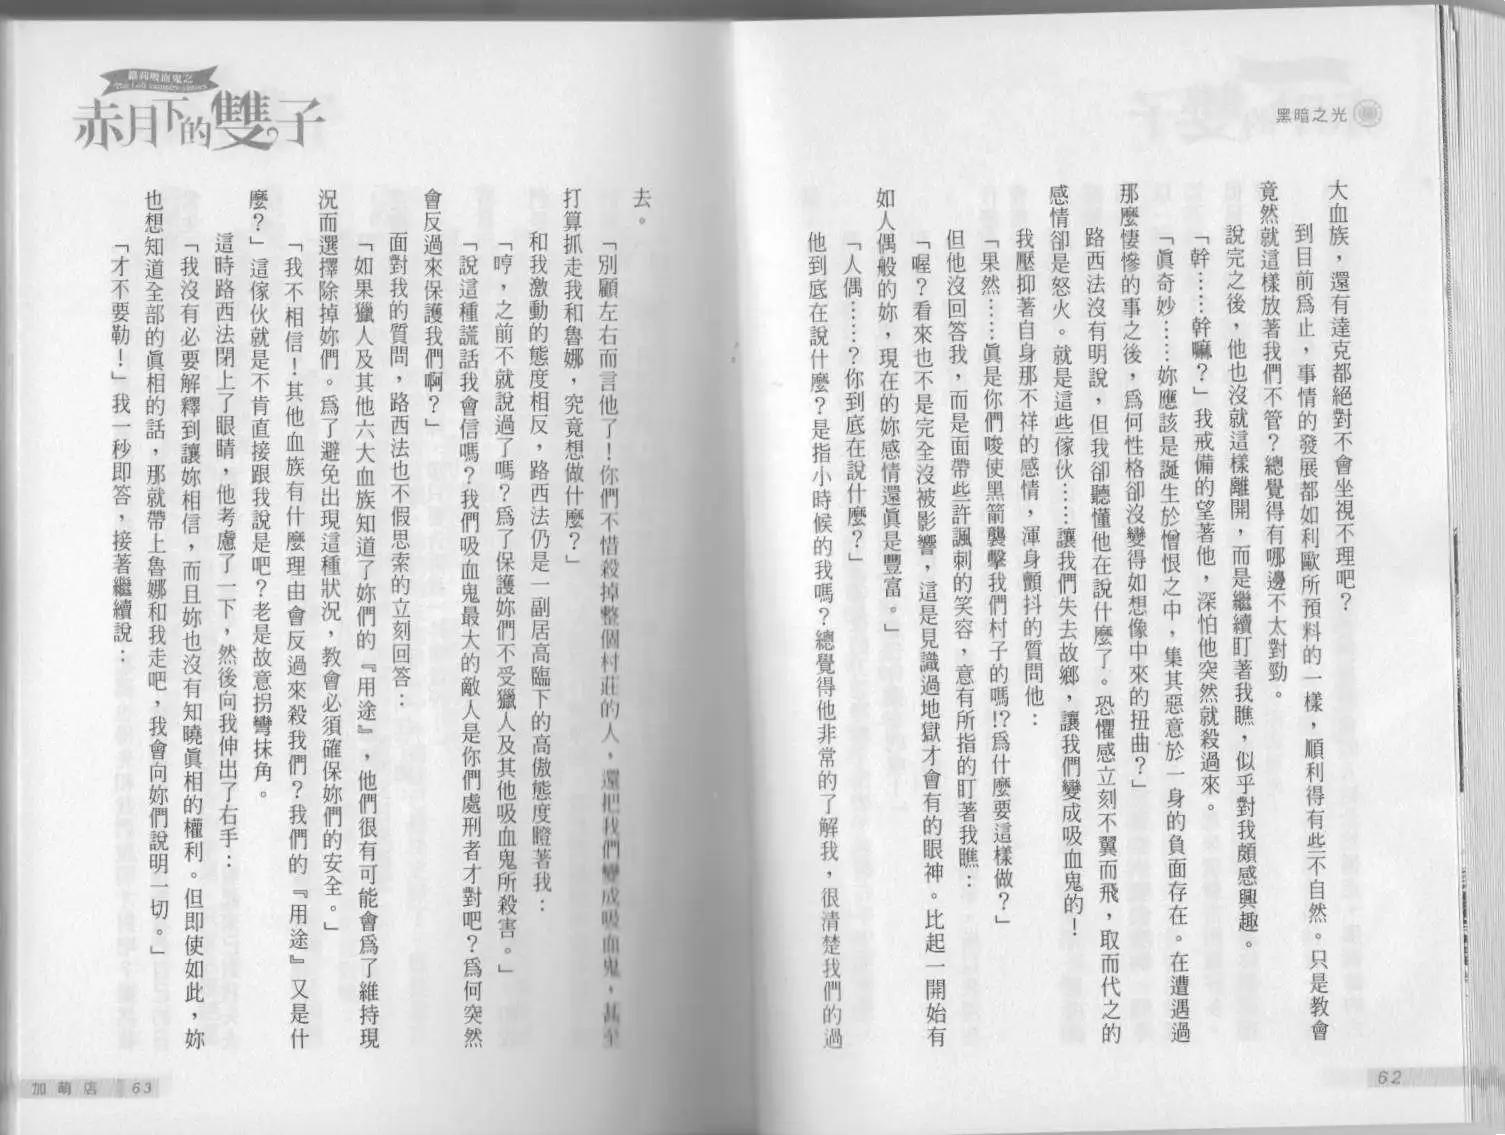 黑暗之光
大血族，還有達克都絕對不會坐視不理吧？
到目前為止，事情的發展都如利歐所預料的一樣，順利得有些不自然。只是教會
竟然就這樣放著我們不管？總覺得有哪邊不太對勁。
說完之後，他也沒就這樣離開，而是繼續盯著我瞧，似乎對我頗感興趣。
「幹……幹嘛？」我戒備的望著他，深怕他突然就殺過來。
「真奇妙……妳應該是誕生於憎恨之中，集其惡意於一身的負面存在。在遭遇過
那麼悽慘的事之後，為何性格卻沒變得如想像中來的扭曲？」
路西法沒有明說，但我卻聽懂他在說什麼了。恐懼感立刻不翼而飛，取而代之的
感情卻是怒火。就是這些傢伙……讓我們失去故鄉，讓我們變成吸血鬼的！
我壓抑著自身那不祥的感情，渾身顫抖的質問他：
「果然……真是你們唆使黑箭襲擊我們村子的嗎!?為什麼要這樣做？」
但他沒回答我，而是面帶些許諷刺的笑容，意有所指的盯著我瞧：
「喔？看來也不是完全沒被影響，這是見識過地獄才會有的眼神。比起一開始有
如人偶般的妳，現在的妳感情還真是豐富。」
「人偶……？你到底在說什麼？」
他到底在說什麼？是指小時候的我嗎？總覺得他非常的了解我，很清楚我們的過
62
蘿莉吸血鬼之
赤月下的雙子
去。
「別顧左右而言他了！你們不惜殺掉整個村莊的人，還把我們變成吸血鬼，甚至
打算抓走我和魯娜，究竟想做什麼？」
和我激動的態度相反，路西法仍是一副居高臨下的高傲態度瞪著我：
「哼，之前不就說過了嗎？為了保護妳們不受獵人及其他吸血鬼所殺害。」
「說這種謊話我會信嗎？我們吸血鬼最大的敵人是你們處刑者才對吧？為何突然
會反過來保護我們啊？」
面對我的質問，路西法也不假思索的立刻回答：
「如果獵人及其他六大血族知道了妳們的『用途』，他們很有可能會為了維持現
況而選擇除掉妳們。為了避免出現這種狀況，教會必須確保妳們的安全。」
「我不相信！其他血族有什麼理由會反過來殺我們？我們的『用途』又是什
麼？」這傢伙就是不肯直接跟我說是吧？老是故意拐彎抹角。
這時路西法閉上了眼睛，他考慮了一下，然後向我伸出了右手：
「我沒有必要解釋到讓妳相信，而且妳也沒有知曉真相的權利。但即使如此，妳
也想知道全部的真相的話，那就帶上魯娜和我走吧，我會向妳們說明一切。」
「才不要勒！」我一秒即答，接著繼續說：
加萌店 63